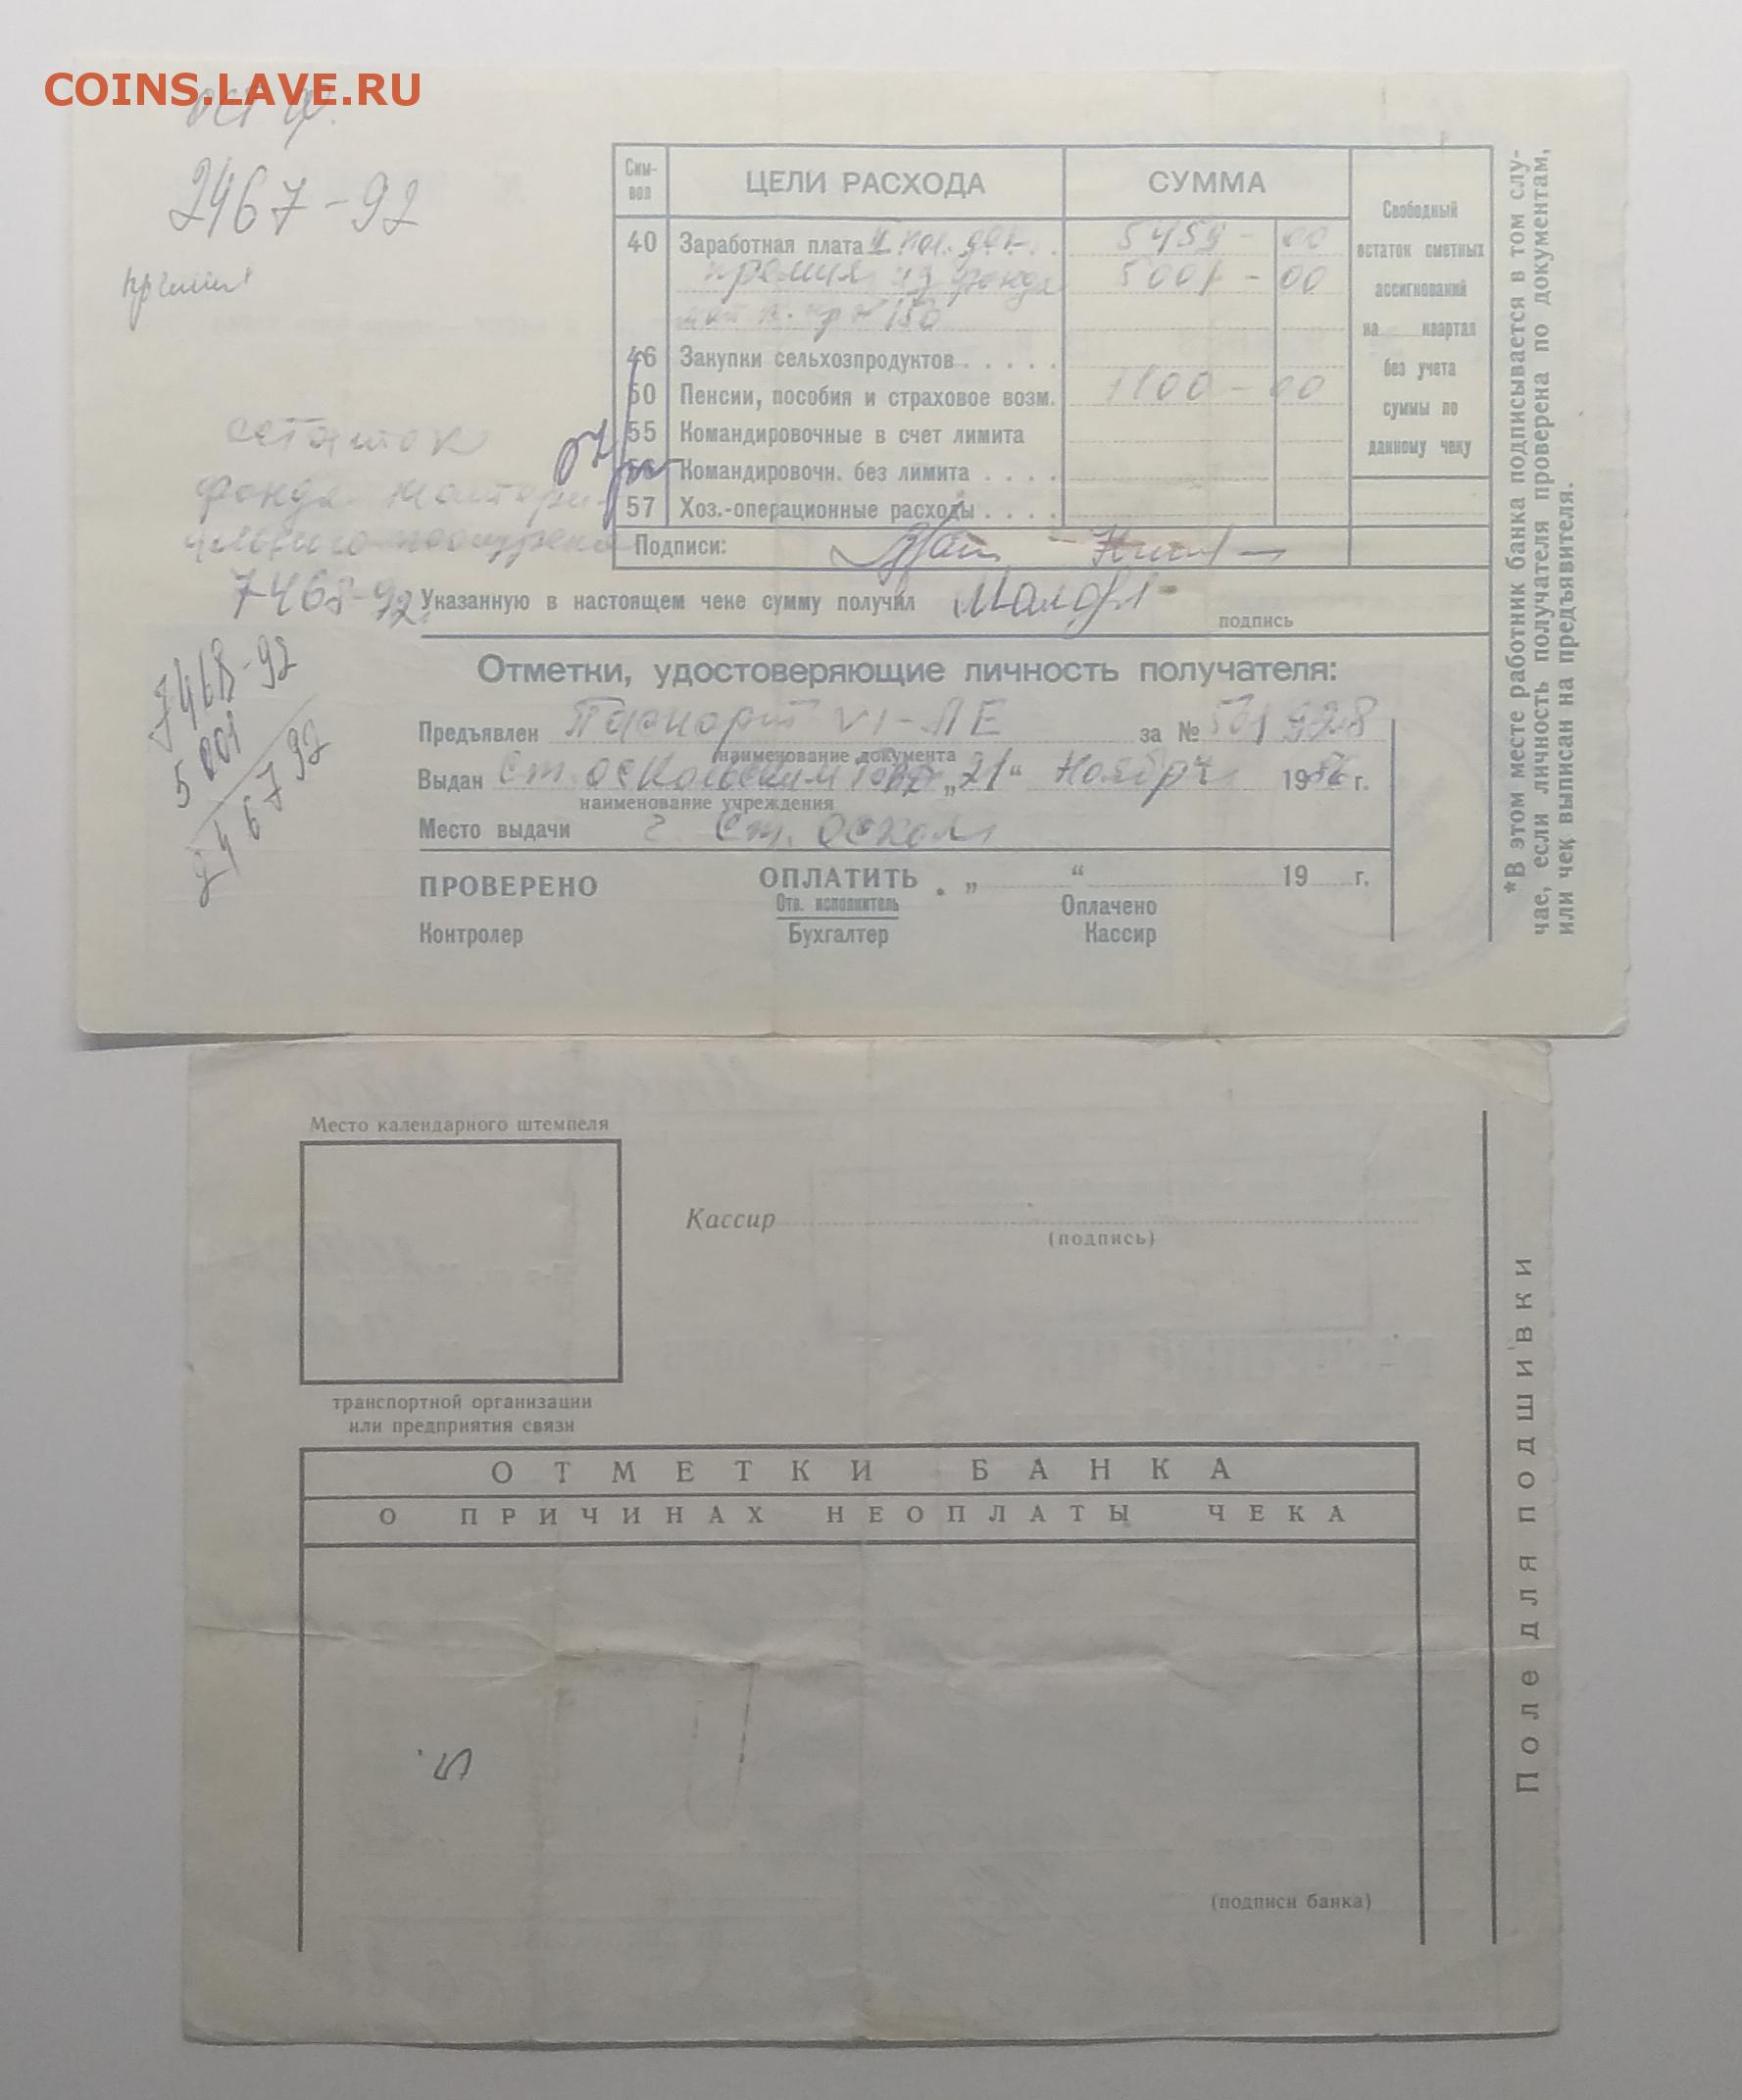 COINS.LAVE.RU
ост ф.
2467-92
премия
Сим-
вол
ЦЕЛИ РАСХОДА
СУММА
Свободный
остаток сметных
ассигнований
на квартал
без учета
суммы по
данному чеку
40 Заработная плата 5459-00
премия из фонда 5001-00
150
46 Закупки сельхозпродуктов . . . . .
50 Пенсии, пособия и страховое возм. 1100-00
55 Командировочные в счет лимита
Командировочн. без лимита . . . .
57 Хоз.-операционные расходы . . . .
Подписи:
остаток
фонда
7468-92
Указанную в настоящем чеке сумму получил
подпись
7468-92
5001
2467 92
Отметки, удостоверяющие личность получателя:
Предъявлен Паспорт VI-ЛЕ за № 501928
наименование документа
Выдан Ст. Оскольским „21“ Ноября 1986 г.
наименование учреждения
Место выдачи г. Ст. Оскол
ПРОВЕРЕНО ОПЛАТИТЬ . „ “ 19 г.
Отв. исполнитель Оплачено
Контролер Бухгалтер Кассир
*В этом месте работник банка подписывается в том слу-
чае, если личность получателя проверена по документам,
или чек выписан на предъявителя.
Место календарного штемпеля
Кассир
(подпись)
транспортной организации
или предприятия связи
ОТМЕТКИ БАНКА
О ПРИЧИНАХ НЕОПЛАТЫ ЧЕКА
(подписи банка)
Поле для подшивки